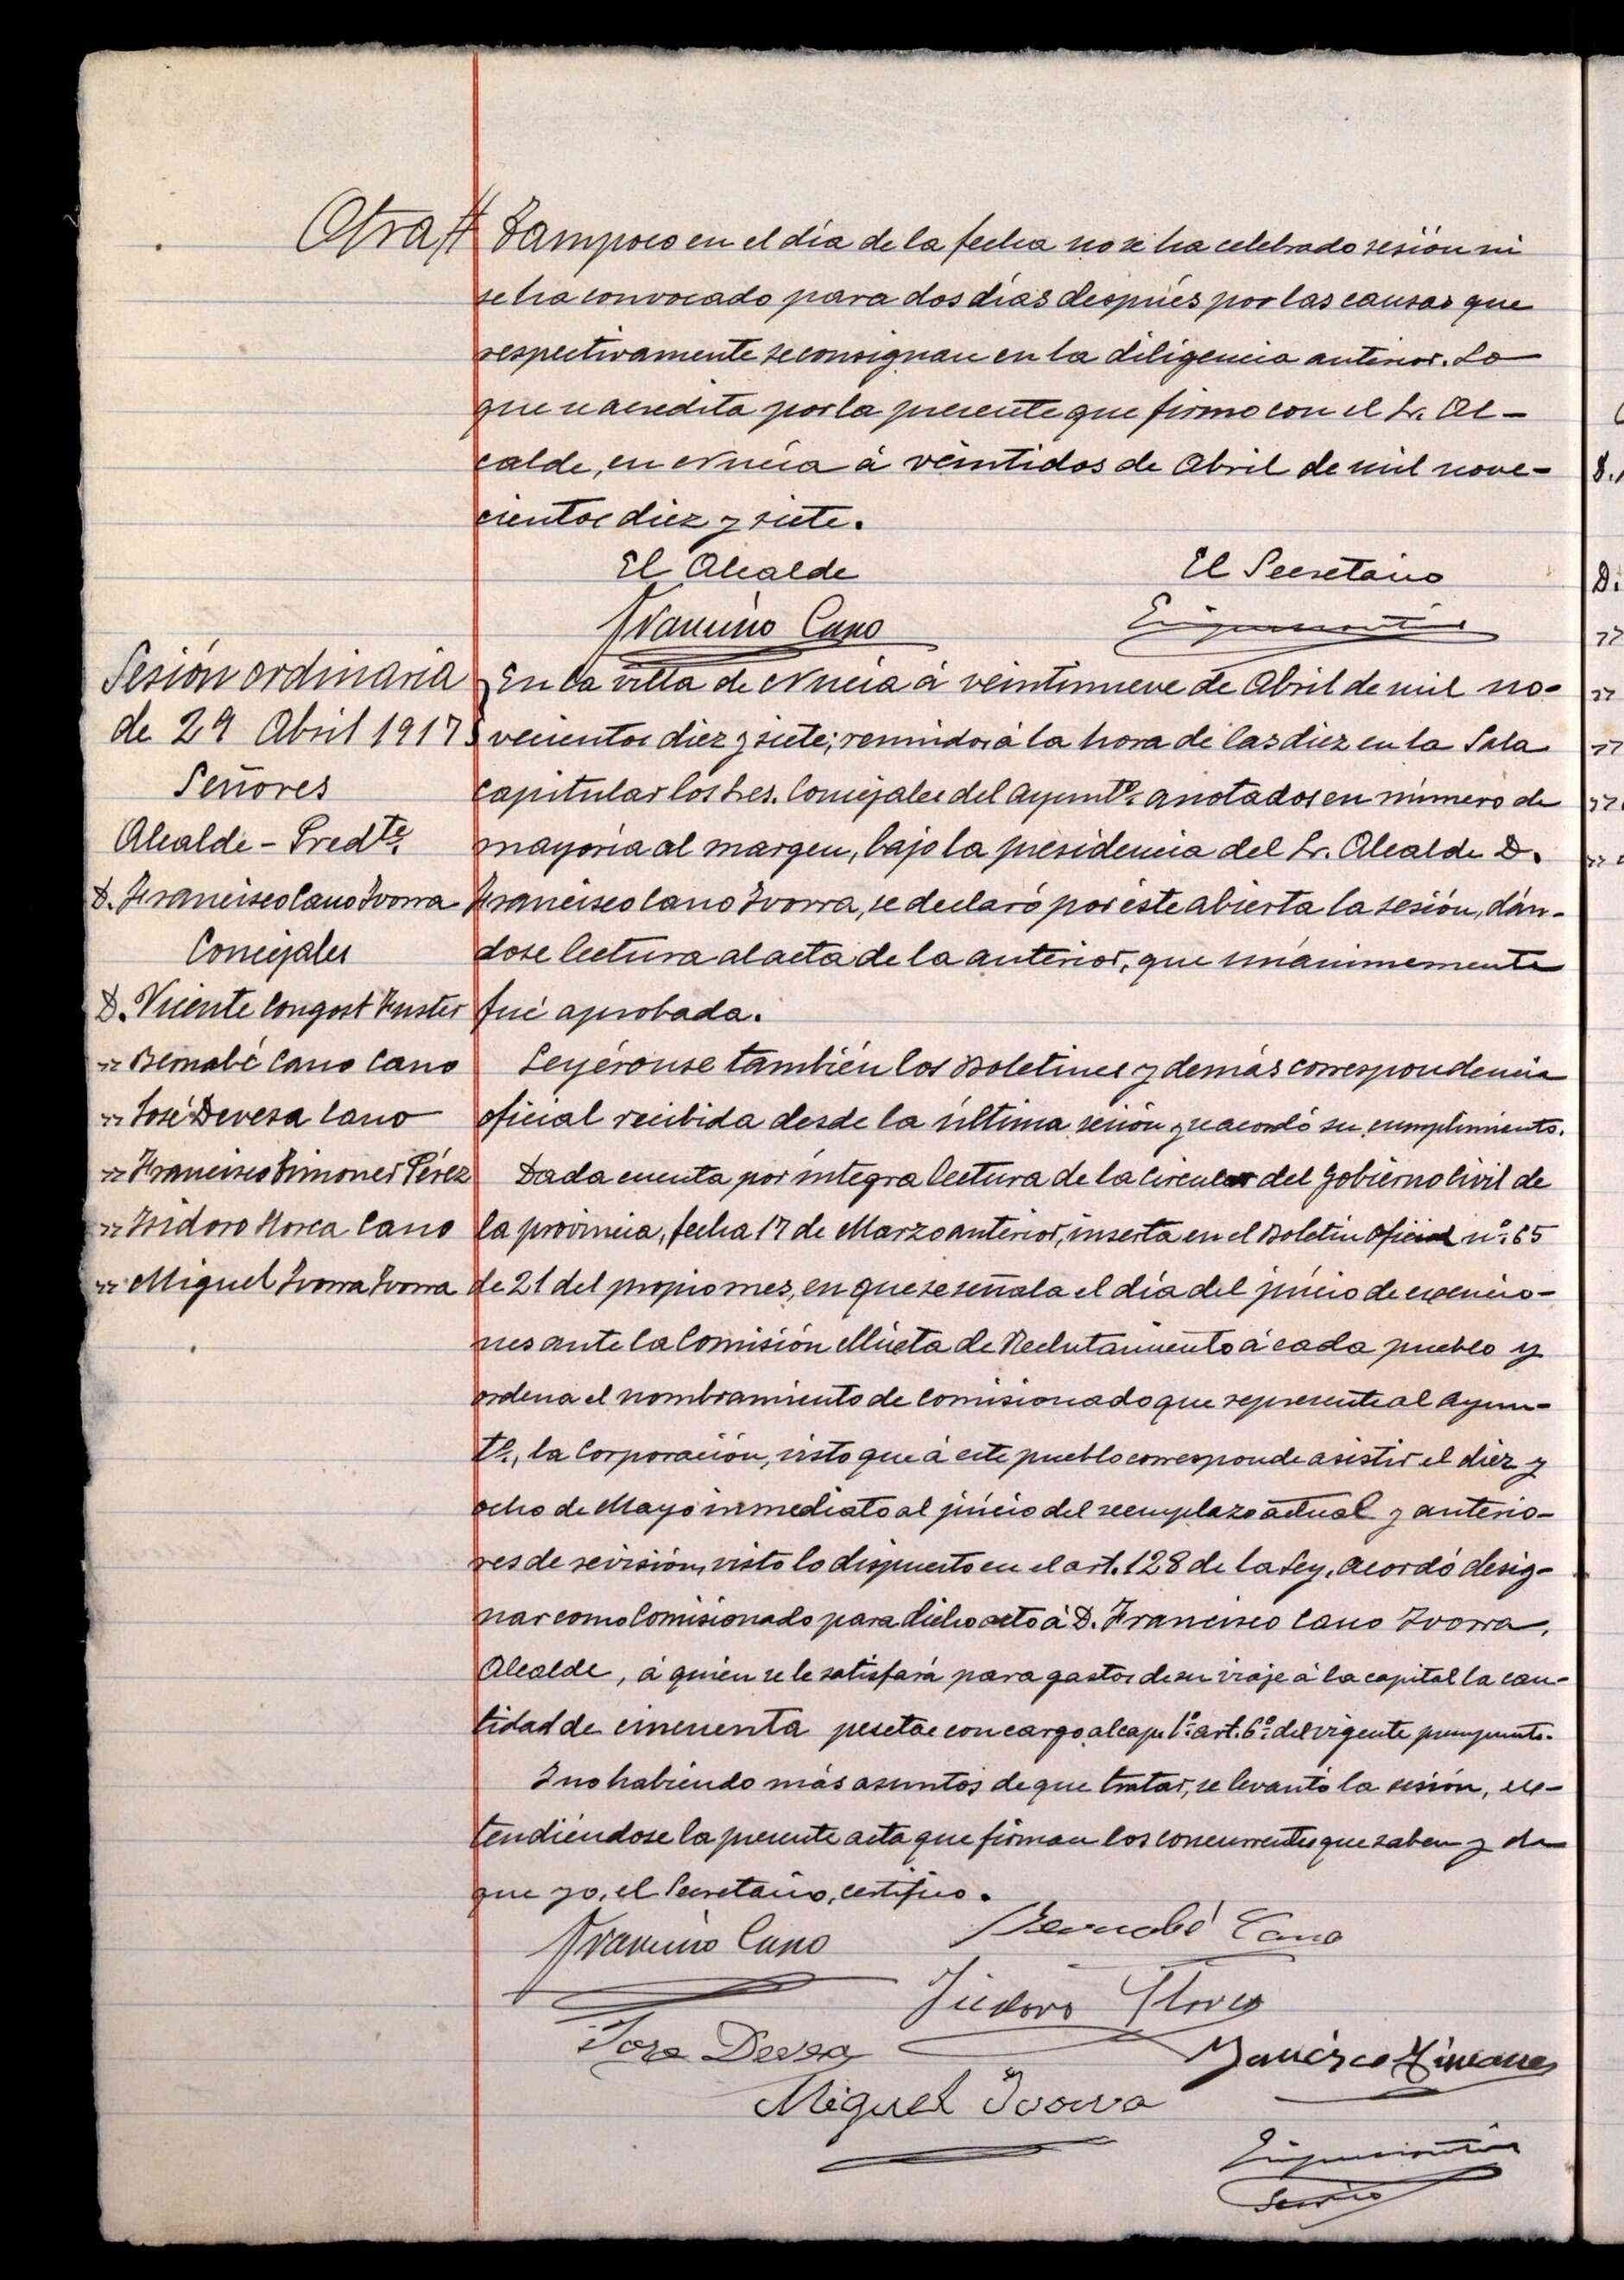 Otra // Tampoco en el día de la fecha no se ha celebrado sesión ni
se ha convocado para dos días después por las causas que
respectivamente se consignan en la diligencia anterior. Lo
que se acredita por la presente que firmo con el Sr. Al-
calde, en Nucía á veintidos de Abril de mil nove-
cientos diez y siete.
El Alcalde El Secretario
Francisco Cano
Sesión ordinaria
de 29 Abril 1917
Señores
Alcalde - Predte.
D. Francisco Cano Ivorra
Concejales
D. Vicente Congost Fuster
" Bernabé Cano Cano
" José Devesa Cano
" Francisco Ximenes Pérez
" Isidoro Llorca Cano
" Miguel Ivorra Ivorra
En la villa de Nucía á veintinueve de Abril de mil no-
vecientos diez y siete; reunidos á la hora de las diez en la Sala
Capitular los Sres. Concejales del Ayuntº. anotados en número de
mayoría al margen, bajo la presidencia del Sr. Alcalde D.
Francisco Cano Ivorra, se declaró por éste abierta la sesión, dán-
dose lectura al acta de la anterior, que unánimemente
fué aprobada.
Leyéronse también los Boletines y demás correspondencia
oficial recibida desde la última sesión y se acordó su cumplimiento.
Dada cuenta por íntegra lectura de la Circular del Gobierno Civil de
la provincia, fecha 17 de Marzo anterior, inserta en el Boletín Oficial nº. 65
de 21 del propio mes, en que se señala el día del juicio de exencio-
nes ante la Comisión Mixta de Reclutamiento á cada pueblo y
ordena el nombramiento de Comisionado que represente al Ayun-
tº., la Corporación, visto que á este pueblo corresponde asistir el diez y
ocho de Mayo inmediato al juicio del reemplazo actual y anterio-
res de revisión, visto lo dispuesto en el art. 128 de la Ley, acordó desig-
nar como Comisionado para dicho acto á D. Francisco Cano Ivorra,
Alcalde, á quien se le satisfará para gastos de su viaje á la capital la can-
tidad de cincuenta pesetas con cargo al cap. 1º. art. 6º. del vigente presupuesto.
Y no habiendo más asuntos de que tratar, se levantó la sesión, ex-
tendiéndose la presente acta que firman los concurrentes que saben y de
que yo, el Secretario, certifico.
Francisco Cano Bernabé Cano
Isidoro Llorca
Jose Devesa Francisco Ximenes
Miguel Ivorra